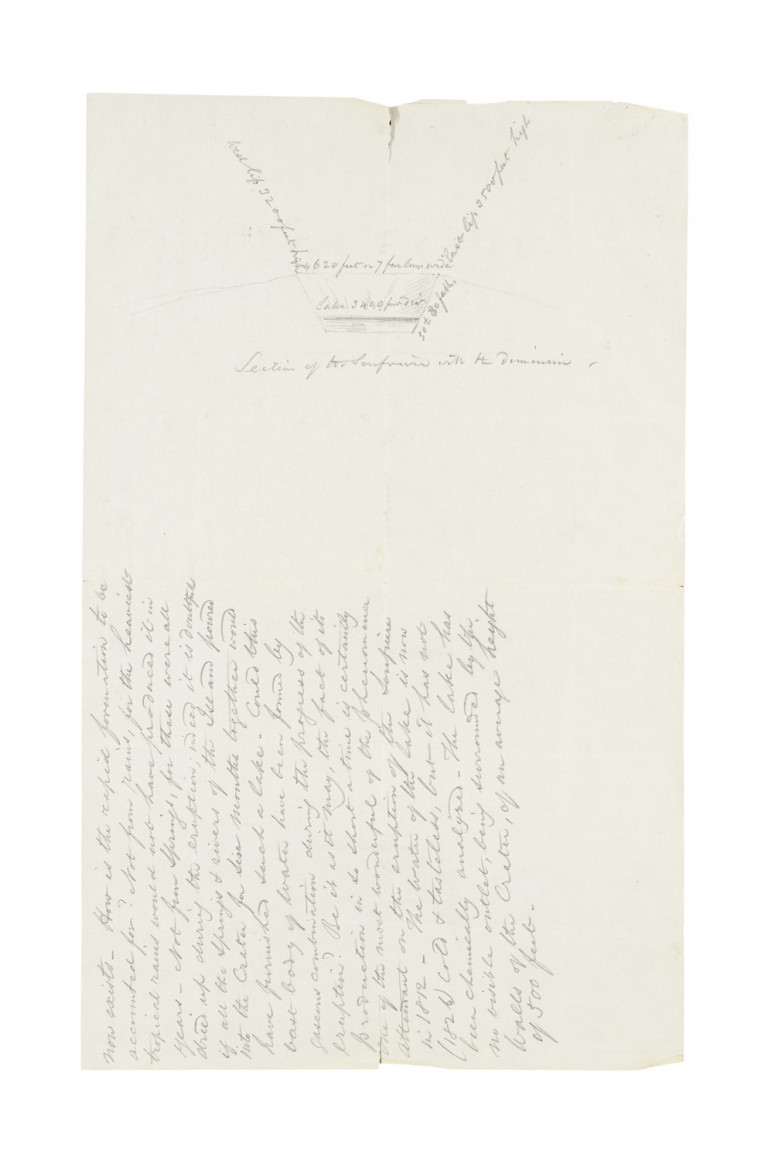 4620 feet or 7 furlongs wide
East lip 3500 feet high
lake 3400 feet
50 to 80 feet
Section of the Soufriere with the dimension
now exists - How is the rapid formation to be
accounted for? Not from rains, for the heaviest
tropical rains would not have produced it in
years - Not from springs, for these were all
dried up during the eruption, indeed it is doubtful
if all the springs & rivers of the Island poured
into the Crater for six months together would
have furnished such a lake - Could this
vast body of water have been formed by
gaseous combination during the progress of the
eruption? Be it as it may, the fact of its
production in so short a time is certainly
one of the most wonderful of the phenomena
attendant on the eruption of the Soufriere
in 1812 - The water of the lake is now
(1826) cold & tasteless, but it has not
been chemically analyzed - The lake has
no visible outlet, being surrounded by the
walls of the Crater, of an average height
of 500 feet -